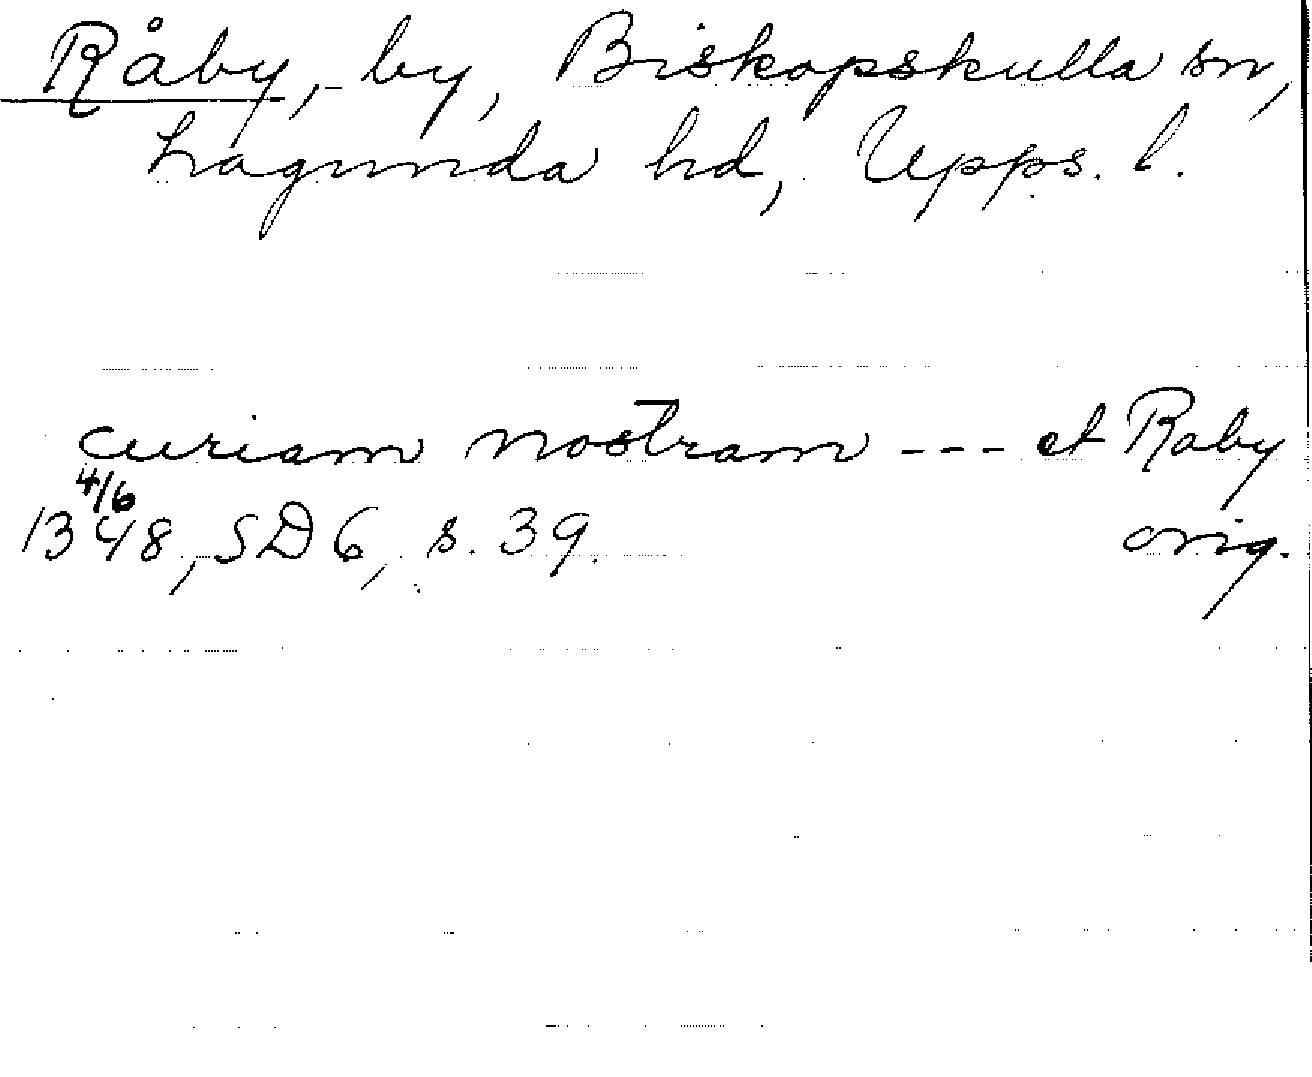 Råby, by, Biskopskulla sn,
Lagunda hd, Upps. l.
curiam nostram --- et Raby
4/6
1348, SD 6, s. 39. orig.